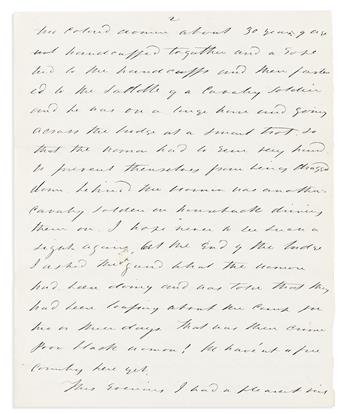 2
two colored women about 30 years of age
not handcuffed together and a rope
tied to the handcuffs and then fasten
ed to the saddle of a Cavalry soldier
and he was on a large horse and going
across the bridge at a smart trot. so
that the women had to run very hard
to prevent themselves from being dragged
down behind the women was another
Cavalry soldier on horseback driving
them on. I hope never to see such a
sight again. At the End of the bridge
I asked the guard what the women
had been doing and was told that they
had been loafing about the Camp for
two or three days that was their crime
poor black women! We have'nt a free
Country here yet.
This Evening I had a pleasant